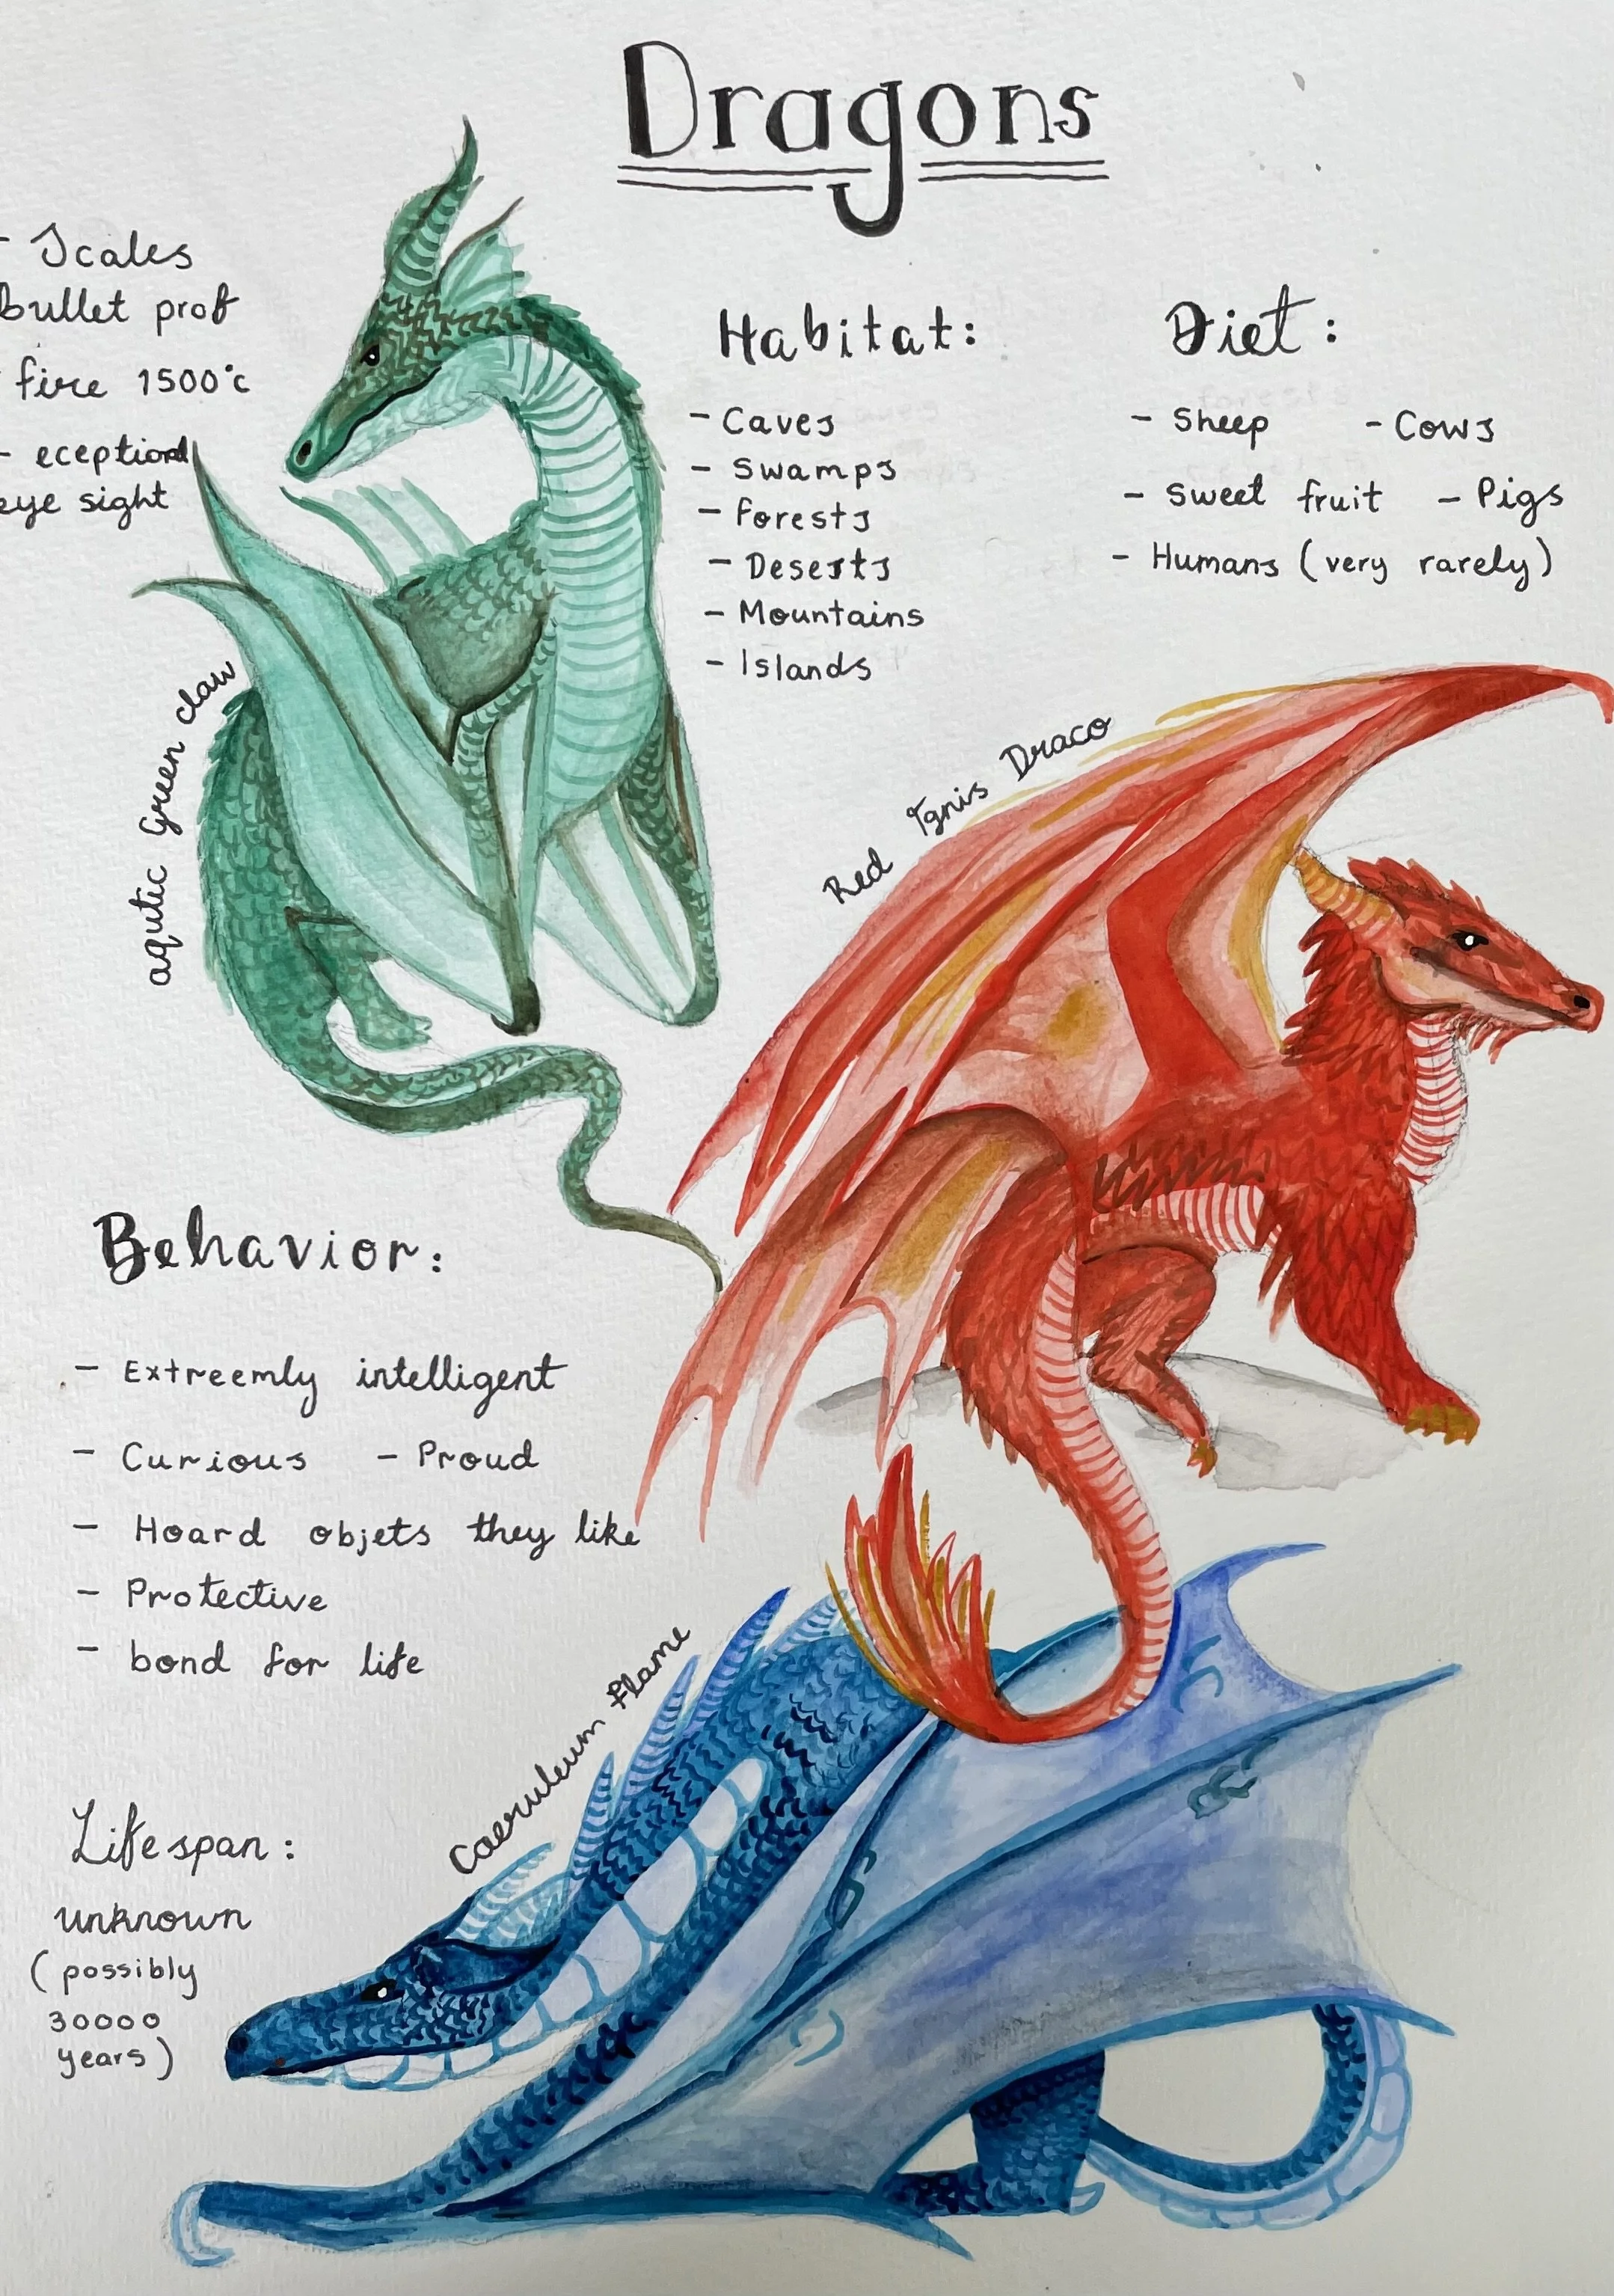 Dragons
- Scales
bullet prof
fire 1500°c
- eceptional
eye sight
Habitat:
- Caves
- Swamps
- Forests
- Deserts
- Mountains
- Islands
Diet:
- Sheep - Cows
- Sweet fruit - Pigs
- Humans (very rarely)
aqutic Green claw
Red Ignis Draco
Behavior:
- Extreemly intelligent
- Curious - Proud
- Hoard objets they like
- Protective
- bond for life
Caeruleum Flame
Lifespan:
unknown
(possibly
30000
years)